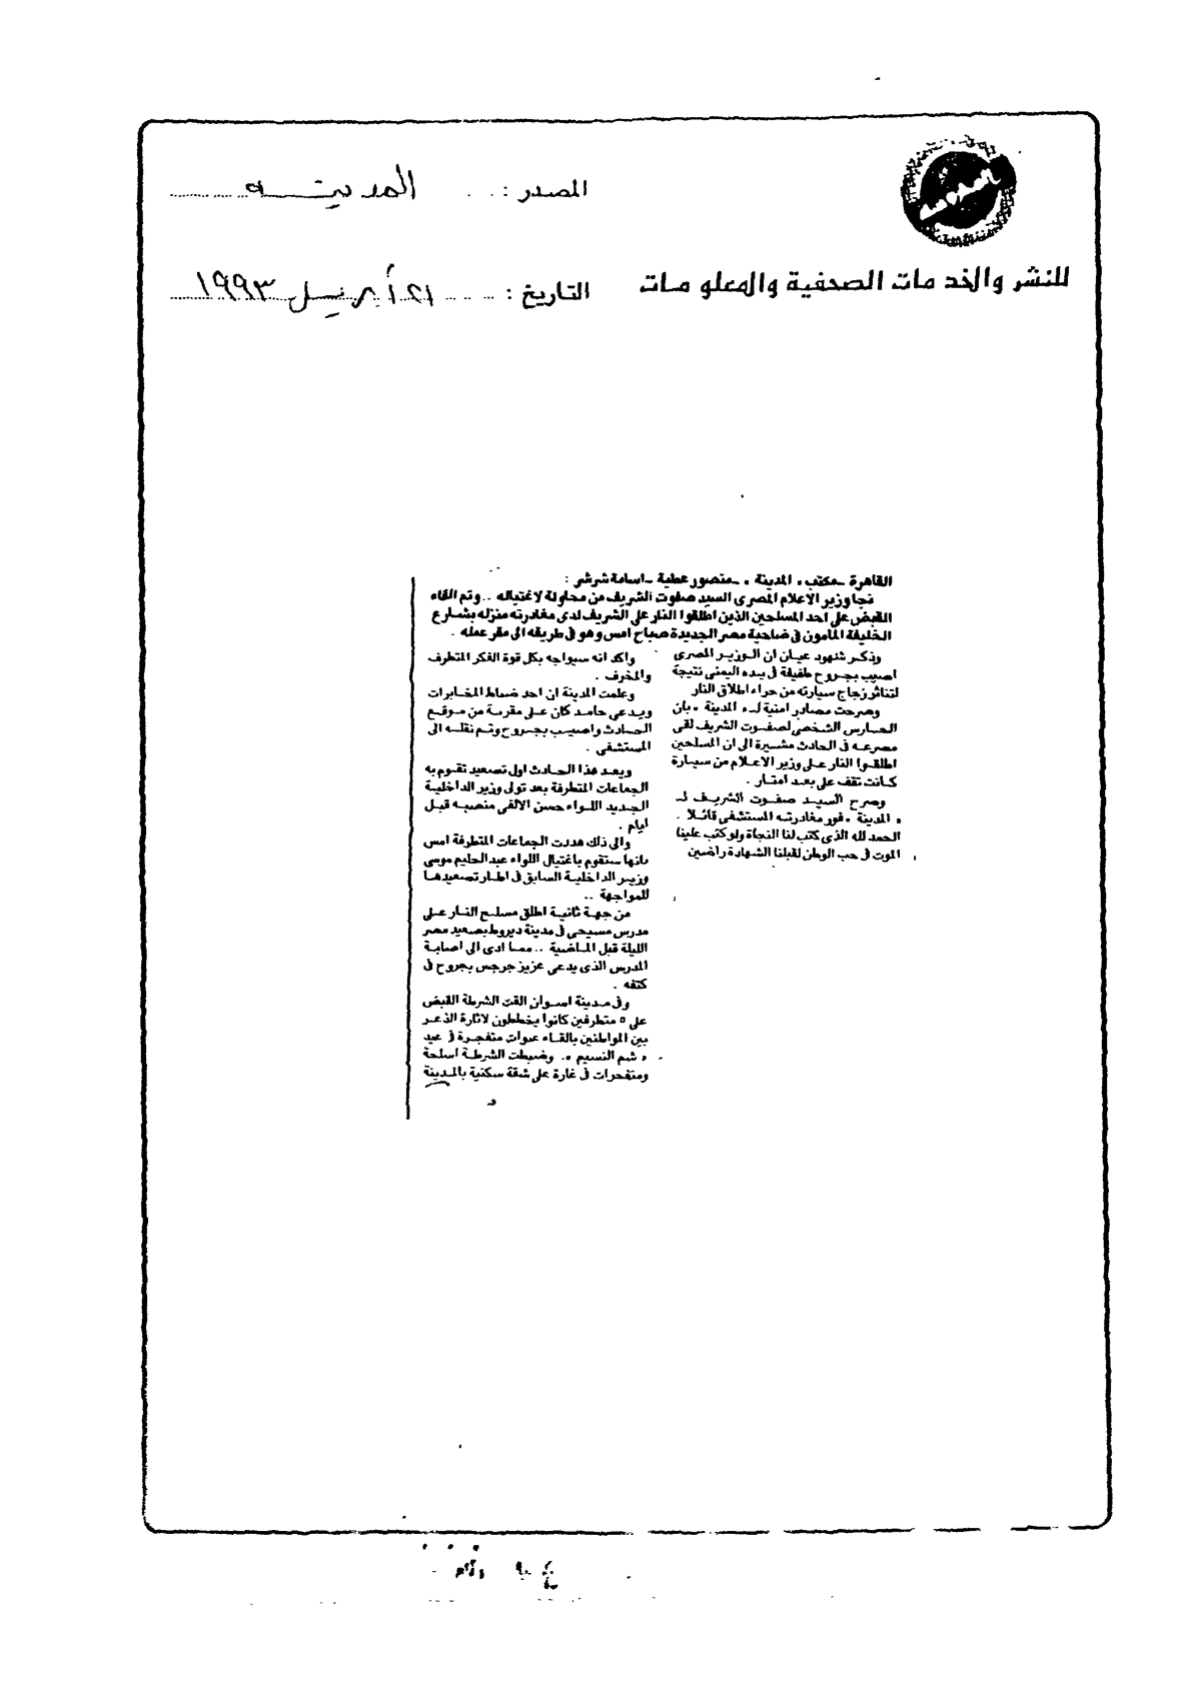 المصدر : المدينة
للنشر والخدمات الصحفية والمعلومات
التاريخ : ٢١ أبريل ١٩٩٣
القاهرة ـ مكتب « المدينة » ـ منصور عطية ـ اسامة شرشر :
نجا وزير الاعلام المصرى السيد صفوت الشريف من محاولة لاغتياله .. وتم القاء
القبض على احد المسلحين الذين اطلقوا النار على الشريف لدى مغادرته منزله بشارع
الخليفة المأمون فى ضاحية مصر الجديدة صباح امس وهو فى طريقه الى مقر عمله .
وذكر شهود عيان ان الوزير المصرى
اصيب بجروح طفيفة فى يده اليمنى نتيجة
لتناثر زجاج سيارته من جراء اطلاق النار
وصرحت مصادر امنية لـ « المدينة » بان
الحارس الشخصى لصفوت الشريف لقى
مصرعه فى الحادث مشيرة الى ان المسلحين
اطلقوا النار على وزير الاعلام من سيارة
كانت تقف على بعد امتار .
وصرح السيد صفوت الشريف لـ
« المدينة » فور مغادرته المستشفى قائلا .
الحمد لله الذى كتب لنا النجاة ولو كتب علينا
الموت فى حب الوطن لقبلنا الشهادة راضين
واكد انه سيواجه بكل قوة الفكر المتطرف
والمخرف .
وعلمت المدينة ان احد ضباط المخابرات
ويدعى حامد كان على مقربة من موقع
الحادث واصيب بجروح وتم نقله الى
المستشفى .
ويعد هذا الحادث اول تصعيد تقوم به
الجماعات المتطرفة بعد تولى وزير الداخلية
الجديد اللواء حسن الالفى منصبه قبل
ايام .
والى ذلك هددت الجماعات المتطرفة امس
بانها ستقوم باغتيال اللواء عبدالحليم موسى
وزير الداخلية السابق فى اطار تصعيدها
للمواجهة ..
من جهة ثانية اطلق مسلح النار على
مدرس مسيحى فى مدينة ديروط بصعيد مصر
الليلة قبل الماضية .. مما ادى الى اصابة
المدرس الذى يدعى عزيز جرجس بجروح فى
كتفه .
وفى مدينة اسوان القت الشرطة القبض
على ٥ متطرفين كانوا يخططون لاثارة الذعر
بين المواطنين بالقاء عبوات متفجرة فى عيد
« شم النسيم » . وضبطت الشرطة اسلحة
ومتفجرات فى غارة على شقة سكنية بالمدينة